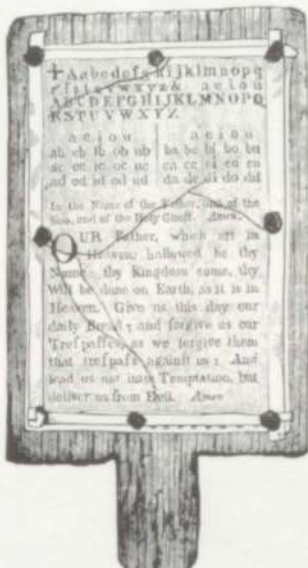 Aabcdefghijklmnopq
rſstuvwxyz& aeiou
ABCDEFGHIJKLMNOPQ
RSTUVWXYZ
a e i o u a e i o u
ab eb ib ob ub ba be bi bo bu
ac ec ic oc uc ca ce ci co cu
ad ed id od ud da de di do du
In the Name of the Father, and of the
Son, and of the Holy Ghoſt. Amen.
OUR Father, which art in
Heaven, hallowed be thy
Name; thy Kingdom come, thy
Will be done on Earth, as it is in
Heaven. Give us this day our
daily Bread; and forgive us our
Treſpaſſes, as we forgive them
that treſpaſs againſt us: And
lead us not into Temptation, but
deliver us from Evil. Amen